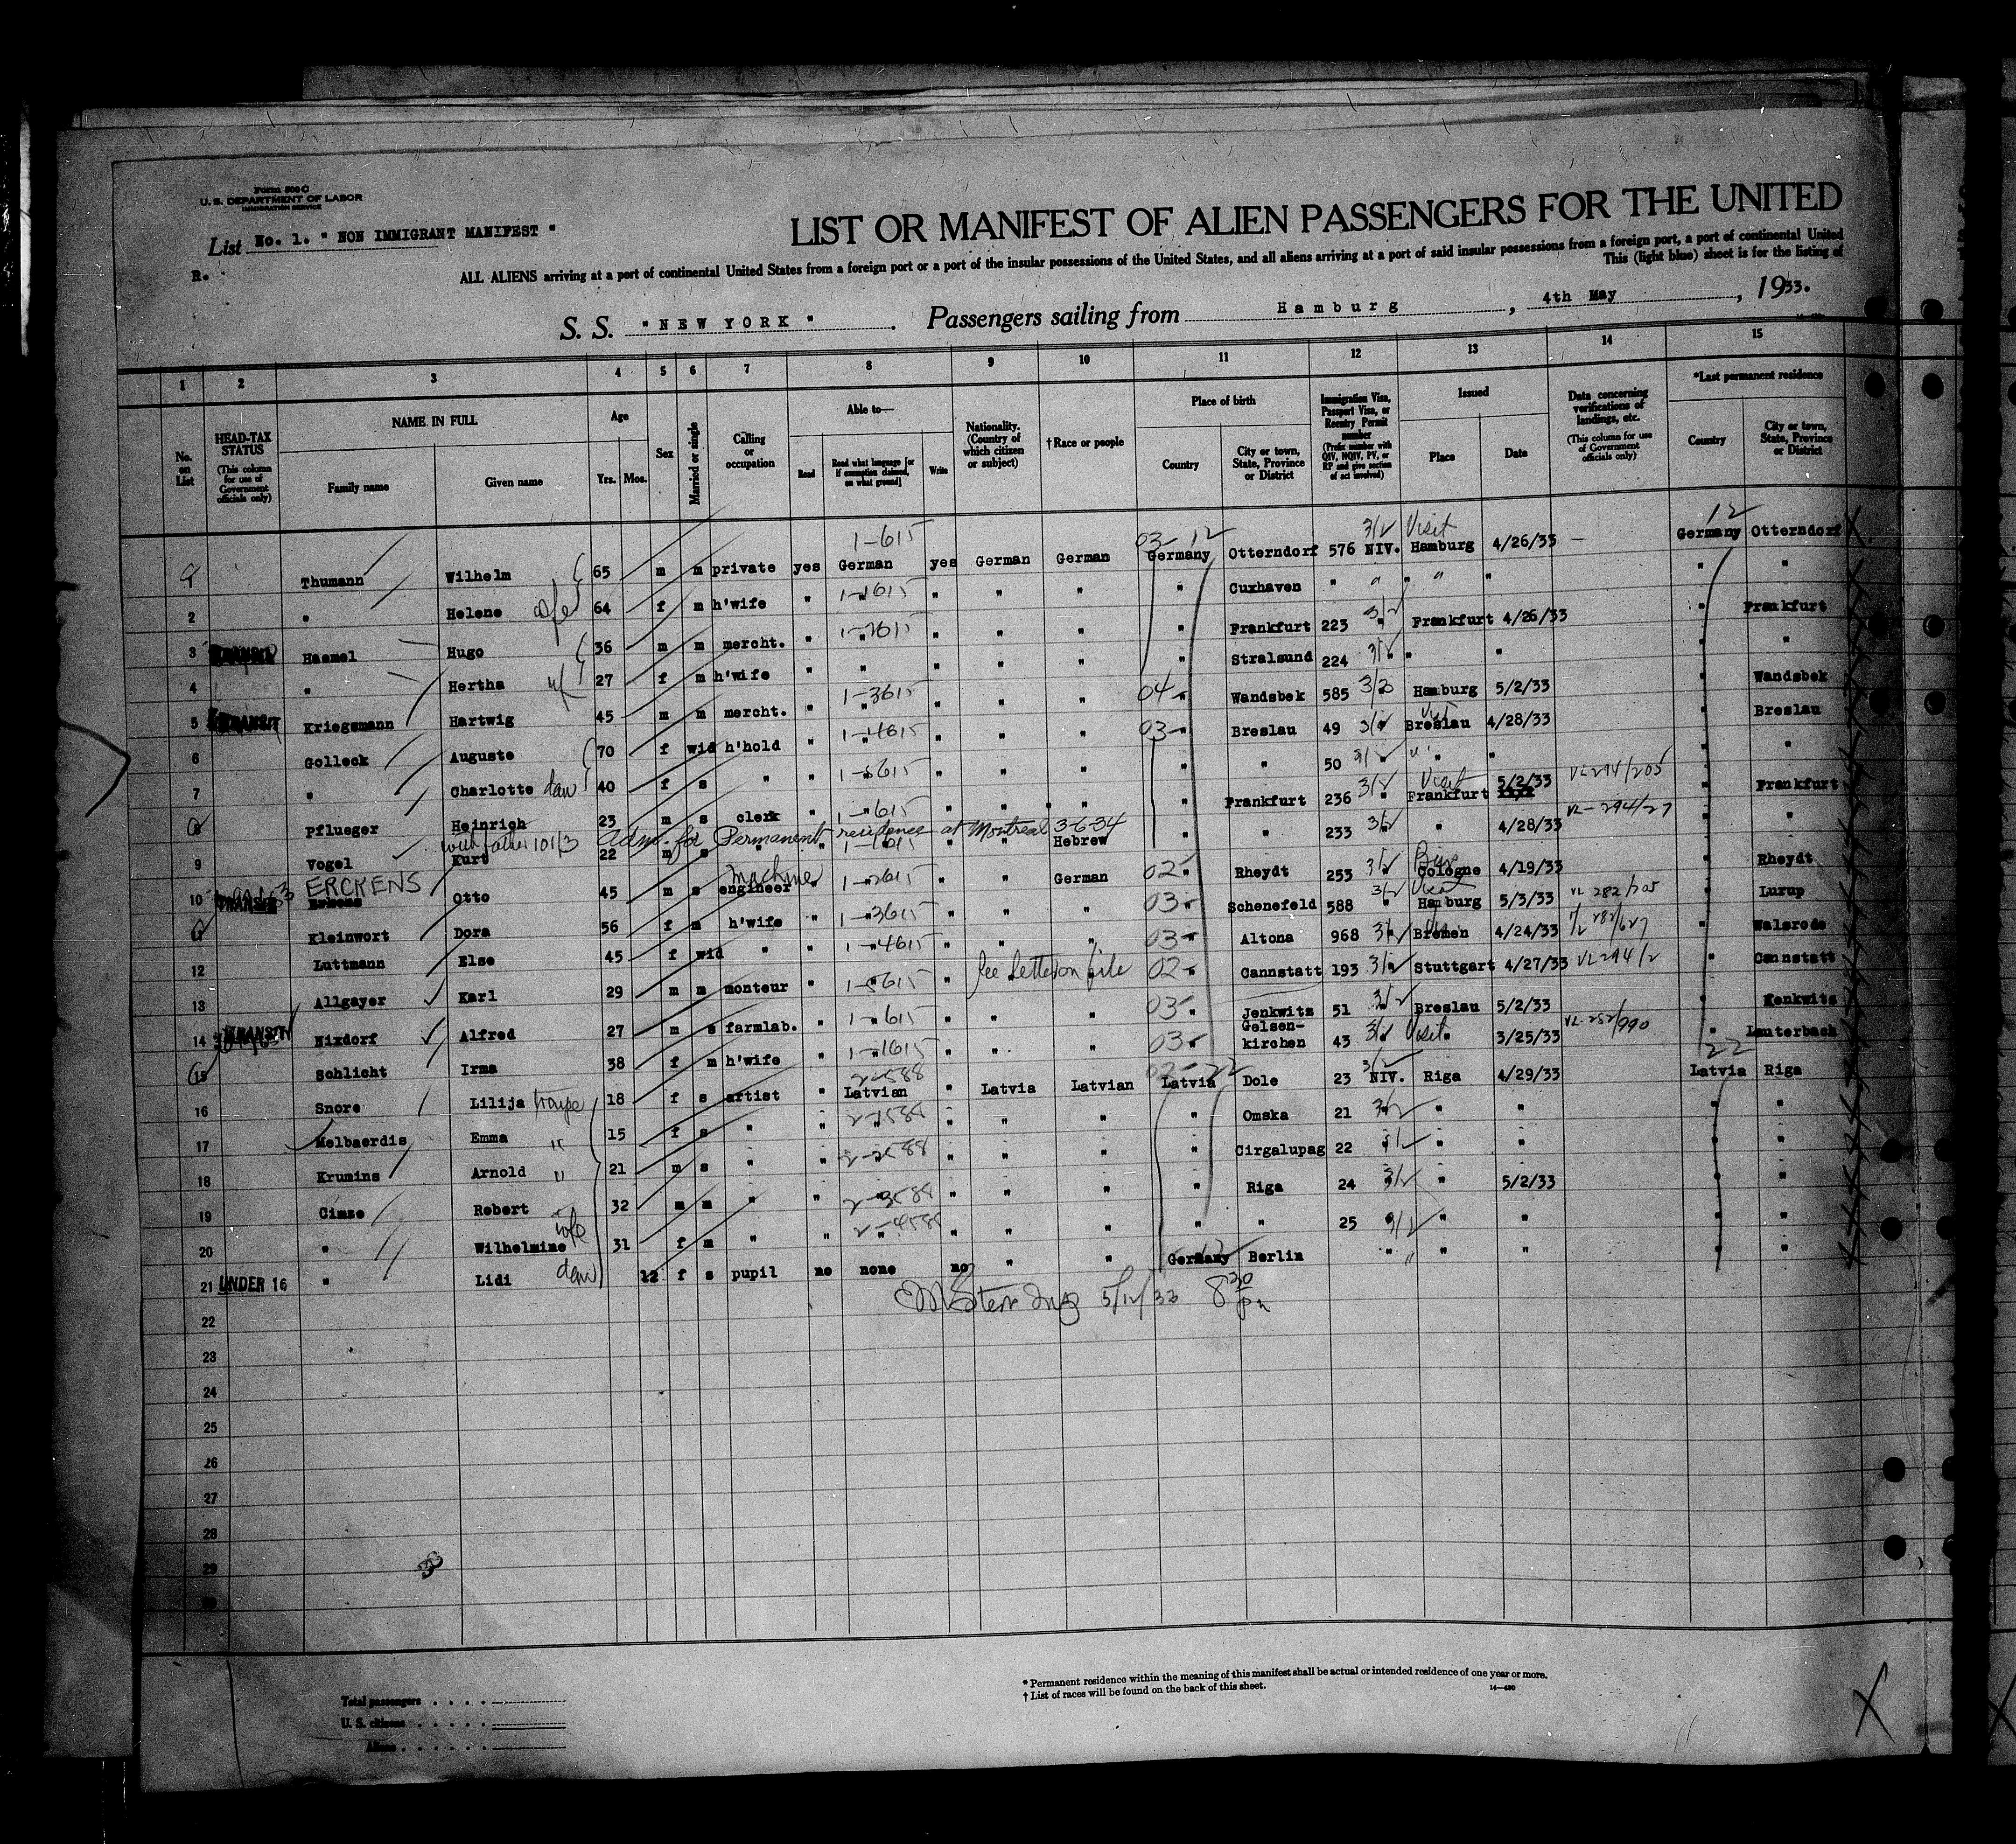 Form 500 C
U. S. DEPARTMENT OF LABOR
IMMIGRATION SERVICE
List No. 1. " NON IMMIGRANT MANIFEST "
R.
LIST OR MANIFEST OF ALIEN PASSENGERS FOR THE UNITED
ALL ALIENS arriving at a port of continental United States from a foreign port or a port of the insular possessions of the United States, and all aliens arriving at a port of said insular possessions from a foreign port, a port of continental United
This (light blue) sheet is for the listing of
S. S. " NEW YORK " . Passengers sailing from Hamburg , 4th May , 1933.
1 2 3 4 5 6 7 8 9 10 11 12 13 14 15
No. on List
HEAD-TAX STATUS (This column for use of Government officials only)
NAME IN FULL
Family name Given name
Age
Yrs. Mos.
Sex
Married or single
Calling or occupation
Able to—
Read Read what language [or if exemption claimed, on what ground] Write
Nationality. (Country of which citizen or subject)
† Race or people
Place of birth
Country City or town, State, Province or District
Immigration Visa, Passport Visa, or Reentry Permit number (Prefix number with QIV, NQIV, PV, or RP and give section of act involved)
Issued
Place Date
Data concerning verifications of landings, etc. (This column for use of Government officials only)
*Last permanent residence
Country City or town, State, Province or District
1-615 03-12 3/2 Visit 12
Thumann Wilhelm 65 m m private yes German yes German German Germany Otterndorf 576 NIV. Hamburg 4/26/33 — Germany Otterndorf
2 " Helene wife 64 f m h'wife " 1-1615 " " " " Cuxhaven " " " " " " "
3 TRANSIT Haemel Hugo 36 m m mercht. " 1-2615 " " " " Frankfurt 223 3/2 Frankfurt 4/26/33 " Frankfurt
4 " Hertha wf 27 f m h'wife " " " " " " Stralsund 224 3/2 " " "
5 TRANSIT Kriegsmann Hartwig 45 m m mercht. " 1-3615 " " " 04 " Wandsbek 585 3/3 Hamburg 5/2/33 Wandsbek
6 Golleck Auguste 70 f wid h'hold " 1-4615 " " " 03 " Breslau 49 3/2 Breslau 4/28/33 Breslau
7 " Charlotte dau 40 f s " " 1-5615 " " " " " 50 3/2 " " "
8 Pflueger Heinrich 23 m s clerk " 1-615 " " " " Frankfurt 236 3/2 Visit Frankfurt 5/2/33 VL-294/205 Frankfurt
with father 101/3 Adm. for Permanent residence at Montreal 3-6-34
9 Vogel Kurt 22 m s " " 1-1615 " " Hebrew " " 233 3/2 " 4/28/33 VL-294/27 "
10 TRANSIT ERCKENS Otto 45 m s machine engineer " 1-2615 " " German 02 " Rheydt 253 3/2 Cologne 4/19/33 Rheydt
Kleinwort Dora 56 f m h'wife " 1-3615 " " " 03 " Schenefeld 588 3/2 Visit Hamburg 5/3/33 VL 282/205 " Lurup
12 Luttmann Else 45 f wid " " 1-4615 " " " 03 " Altona 968 3/2 Bremen 4/24/33 Walsrode
13 Allgayer Karl 29 m m monteur " 1-5615 " See Letter on file 02 " Cannstatt 193 3/2 Stuttgart 4/27/33 VL294/2 " Cannstatt
14 TRANSIT Nixdorf Alfred 27 m s farmlab. " 1-615 " " " 03 " Jenkwitz 51 3/2 Breslau 5/2/33 " Kenkwitz
15 Schlicht Irma 38 f m h'wife " 1-1615 " " " 03 " Gelsen-kirchen 43 3/2 Visit " 3/25/33 VL-252/990 " Lauterbach
16 Snore Lilija troupe 18 f s artist " 2-588 Latvian " Latvia Latvian Latvia Dole 23 3/2 NIV. Riga 4/29/33 22 Latvia Riga
17 Melbaerdis Emma " 15 f s " " 2-1588 " " " " Omska 21 3/2 " " " "
18 Krumins Arnold " 21 m s " " 2-2588 " " " " Cirgalupag 22 3/2 " " " "
19 Cimze Robert 32 m m " " 2-3588 " " " " Riga 24 3/2 " 5/2/33 " "
20 " Wilhelmine wife 31 f m " " 2-4588 " " " " " 25 3/2 " " " "
21 UNDER 16 " Lidi dau 12 f s pupil no none no " " Germany Berlin " " " " " "
5/12/33 8 30 pm
22
23
24
25
26
27
28
29
30
Total passengers . . . .
U. S. citizens . . . . .
Aliens . . . . . .
* Permanent residence within the meaning of this manifest shall be actual or intended residence of one year or more.
† List of races will be found on the back of this sheet.
14—430